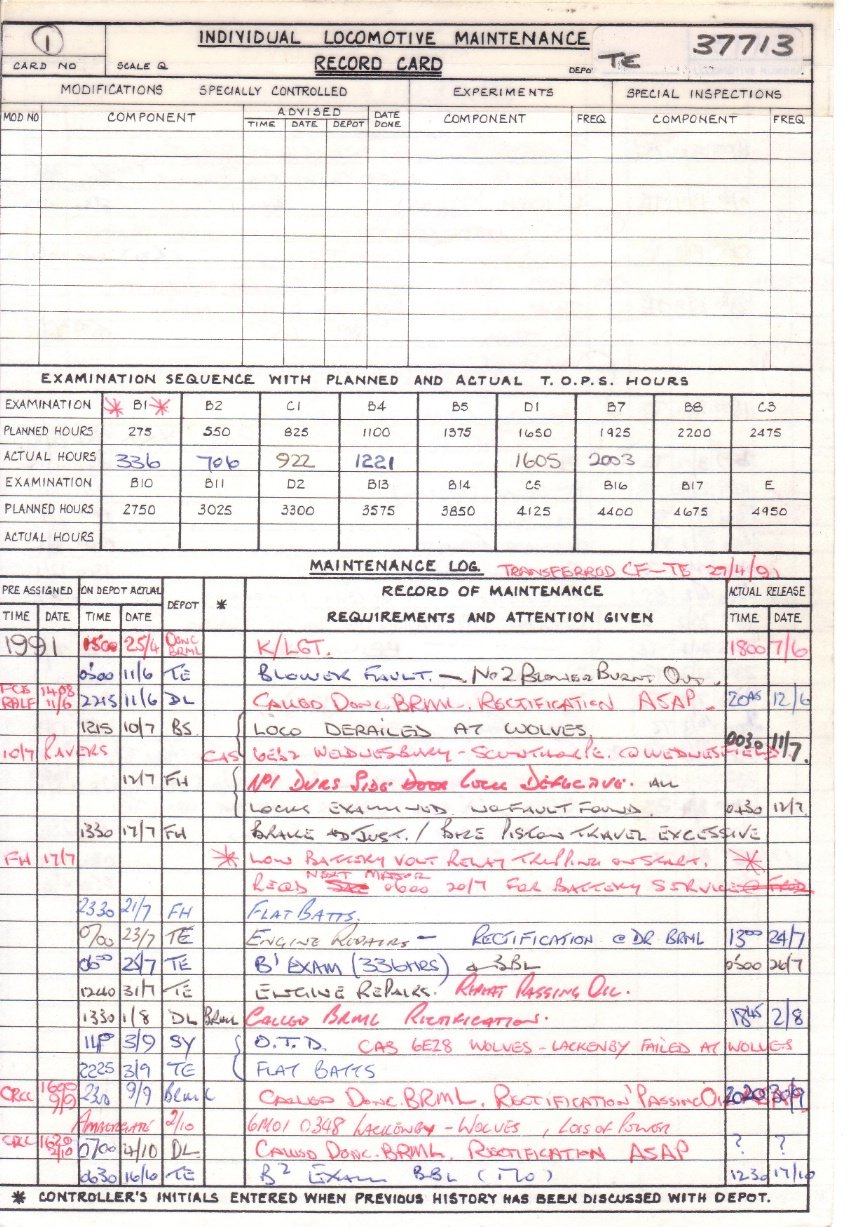 1
INDIVIDUAL LOCOMOTIVE MAINTENANCE
RECORD CARD
CARD NO
SCALE Q
DEPOT TE
37713
MODIFICATIONS SPECIALLY CONTROLLED
EXPERIMENTS
SPECIAL INSPECTIONS
MOD NO COMPONENT ADVISED DATE DONE COMPONENT FREQ COMPONENT FREQ
TIME DATE DEPOT
EXAMINATION SEQUENCE WITH PLANNED AND ACTUAL T.O.P.S. HOURS
EXAMINATION * B1 * B2 C1 B4 B5 D1 B7 B8 C3
PLANNED HOURS 275 550 825 1100 1375 1650 1925 2200 2475
ACTUAL HOURS 336 706 922 1221 1605 2003
EXAMINATION B10 B11 D2 B13 B14 C5 B16 B17 E
PLANNED HOURS 2750 3025 3300 3575 3850 4125 4400 4675 4950
ACTUAL HOURS
MAINTENANCE LOG. TRANSFERRED CF-TE 29/4/91
PRE ASSIGNED ON DEPOT ACTUAL DEPOT * RECORD OF MAINTENANCE ACTUAL RELEASE
TIME DATE TIME DATE REQUIREMENTS AND ATTENTION GIVEN TIME DATE
1991 1500 25/4 DONC BRML K/LGT. 1800 7/6
0500 11/6 TE BLOWER FAULT. - No 2 BLOWER BURNT OUT.
1408 11/6 2215 11/6 DL CALLED DONC. BRML. RECTIFICATION ASAP. 2045 12/6
1215 10/7 BS LOCO DERAILED AT WOLVES,
10/7 CAS 6E32 WEDNESBURY - SCUNTHORPE. @ WEDNESFIELD 0030 11/7.
12/7 FH No1 DVRS SIDE DOOR LOCK DEFECTIVE. ALL
LOCKS EXAMINED. NO FAULT FOUND. 0430 12/7
1330 17/7 FH BRAKE ADJUST. / PISTON TRAVEL EXCESSIVE
FH 17/7 * LOW BATTERY VOLT RELAY TRIPPING ON START. *
REQD 0600 20/7 FOR BATTERY SERVICE
2330 21/7 FH FLAT BATTS.
0700 23/7 TE ENGINE REPAIRS - RECTIFICATION @ DR BRML 1300 24/7
0600 25/7 TE B1 EXAM (336HRS) & BBL 0500 26/7
1240 31/7 TE ENGINE REPAIRS. REPEAT PASSING OIL.
1330 1/8 DL BRML CALLED BRML RECTIFICATION. 1845 2/8
3/9 SY O.T.D. CAS 6E28 WOLVES - LACKENBY FAILED AT WOLVES
2225 3/9 TE FLAT BATTS
CRCC 1600 9/9 2320 9/9 BRML CALLED DONC. BRML. RECTIFICATION PASSING OIL ASAP 2020
2/10 6M01 0348 LACKENBY - WOLVES, LOSS OF POWER
CRCC 1630 2/10 0700 4/10 DL CALLED DONC. BRML. RECTIFICATION ASAP ? ?
0630 16/10 TE B2 EXAM BBL 1230 17/10
* CONTROLLER'S INITIALS ENTERED WHEN PREVIOUS HISTORY HAS BEEN DISCUSSED WITH DEPOT.